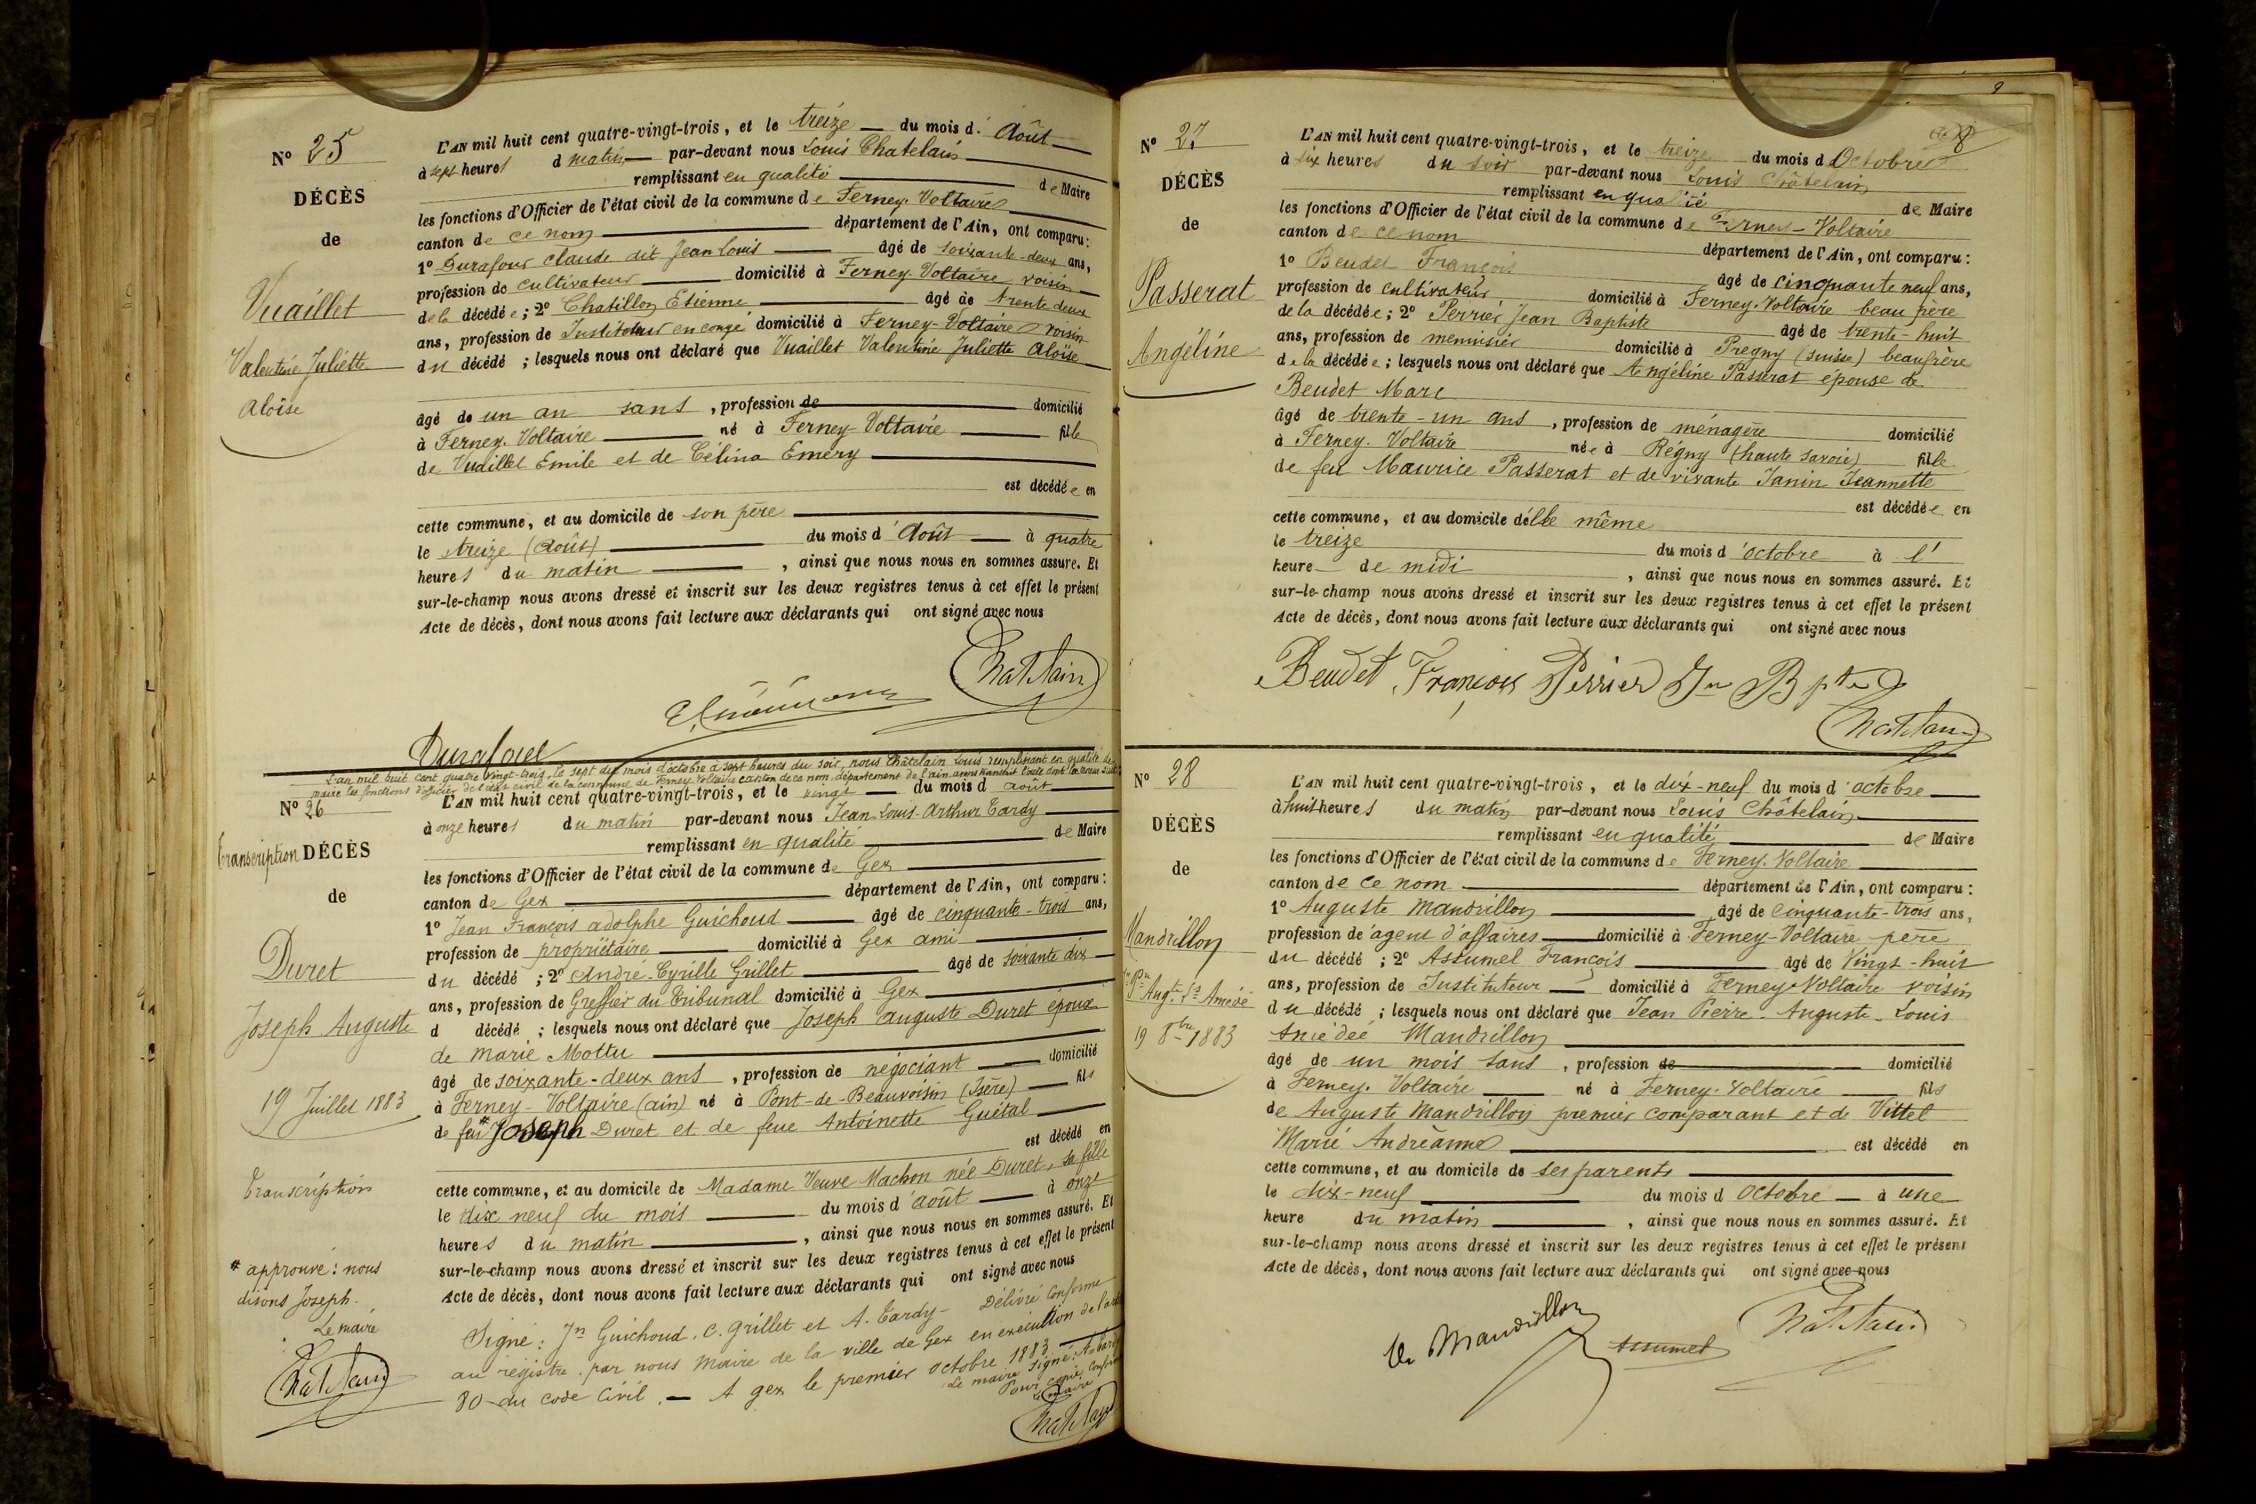 N° 25
DÉCÈS
de
Vuaillet
Valentine Juliette
Aloïse
L'AN mil huit cent quatre-vingt-trois, et le treize du mois d'Août
à sept heures du matin par-devant nous Louis Chatelain
remplissant en qualité de Maire
les fonctions d'Officier de l'état civil de la commune de Ferney-Voltaire
canton de ce nom département de l'Ain, ont comparu:
1° Durafour Claude dit Jean Louis âgé de soixante-deux ans,
profession de cultivateur domicilié à Ferney-Voltaire voisin
de la décédée; 2° Chatillon Etienne âgé de trente deux
ans, profession de Instituteur en congé domicilié à Ferney-Voltaire voisin
du décédé ; lesquels nous ont déclaré que Vuaillet Valentine Juliette Aloïse
âgé de un an sans , profession de domicilié
à Ferney-Voltaire né à Ferney Voltaire fille
de Vuaillet Emile et de Célina Emery
est décédée en
cette commune, et au domicile de son père
le treize (août) du mois d'Août à quatre
heures du matin , ainsi que nous nous en sommes assuré. Et
sur-le-champ nous avons dressé et inscrit sur les deux registres tenus à cet effet le présent
Acte de décès, dont nous avons fait lecture aux déclarants qui ont signé avec nous
Chatelain
Durafour
L'an mil huit cent quatre vingt-trois, le sept du mois d'octobre à sept heures du soir, nous Châtelain Louis remplissant en qualité de
maire les fonctions d'officier de l'état civil de la commune de Ferney-Voltaire canton de ce nom, département de l'ain avons transcrit l'acte dont la teneur suit:
N° 26
Transcription DÉCÈS
de
Duret
Joseph Auguste
19 Juillet 1883
Transcription
* approuvé: nous
disons Joseph.
Le maire
Chatelain
L'AN mil huit cent quatre-vingt-trois, et le vingt du mois d'août
à onze heures du matin par-devant nous Jean-Louis-Arthur Tardy
remplissant en qualité de Maire
les fonctions d'Officier de l'état civil de la commune de Gex
canton de Gex département de l'Ain, ont comparu:
1° Jean François adolphe Guichoud âgé de cinquante-trois ans,
profession de propriétaire domicilié à Gex ami
du décédé ; 2° André-Cyrille Grillet âgé de soixante dix
ans, profession de Greffier du Tribunal domicilié à Gex
d décédé ; lesquels nous ont déclaré que Joseph auguste Duret époux
de Marie Mottu
âgé de soixante-deux ans , profession de négociant domicilié
à Ferney-Voltaire (ain) né à Pont-de-Beauvoisin (Isère) fils
de feu* Joseph Duret et de feue Antoinette Guétal
est décédé en
cette commune, et au domicile de Madame Veuve Machon née Duret, sa fille
le dix neuf du mois du mois d'août à onze
heures du matin , ainsi que nous nous en sommes assuré. Et
sur-le-champ nous avons dressé et inscrit sur les deux registres tenus à cet effet le présent
Acte de décès, dont nous avons fait lecture aux déclarants qui ont signé avec nous
Signé: Jn Guichoud, C. Grillet et A. Tardy- Délivré conforme
au registre par nous maire de la ville de Gex en exécution de l'article
80 du code Civil. A gex le premier octobre 1883
Le maire signé: A.
Pour copie conforme
Le maire
Chatelain
N° 27
DÉCÈS
de
Passerat
Angéline
8
L'AN mil huit cent quatre-vingt-trois, et le treize du mois d'Octobre
à six heures du soir par-devant nous Louis Châtelain
remplissant en qualité de Maire
les fonctions d'Officier de l'état civil de la commune de Ferney-Voltaire
canton de ce nom département de l'Ain, ont comparu:
1° Beudet François âgé de cinquante neuf ans,
profession de cultivateur domicilié à Ferney-Voltaire beau père
de la décédée; 2° Perrier Jean Baptiste âgé de trente-huit
ans, profession de menuisier domicilié à Pregny (suisse) beaufrère
de la décédée; lesquels nous ont déclaré que Angéline Passerat épouse de
Beudet Marc
âgé de trente-un ans , profession de ménagère domicilié
à Ferney-Voltaire née à Régny (haute savoie) fille
de feu Maurice Passerat et de vivante Janin Jeannette
est décédée en
cette commune, et au domicile d'elle même
le treize du mois d'octobre à l'
heure de midi , ainsi que nous nous en sommes assuré. Et
sur-le-champ nous avons dressé et inscrit sur les deux registres tenus à cet effet le présent
Acte de décès, dont nous avons fait lecture aux déclarants qui ont signé avec nous
Beudet François Perrier Jn Bpte
Chatelain
N° 28
DÉCÈS
de
Mandrillon
Jn Pre Augte Ls Amédé
19 8bre 1883
L'AN mil huit cent quatre-vingt-trois, et le dix-neuf du mois d'octobre
à huit heures du matin par-devant nous Louis Châtelain
remplissant en qualité de Maire
les fonctions d'Officier de l'état civil de la commune de Ferney-Voltaire
canton de ce nom département de l'Ain, ont comparu:
1° Auguste Mandrillon âgé de cinquante-trois ans,
profession de agent d'affaires domicilié à Ferney-Voltaire père
du décédé ; 2° Assumel François âgé de vingt-huit
ans, profession de Instituteur domicilié à Ferney-Voltaire voisin
du décédé ; lesquels nous ont déclaré que Jean Pierre-Auguste-Louis
Amédée Mandrillon
âgé de un mois sans , profession de domicilié
à Ferney-Voltaire né à Ferney-Voltaire fils
de Auguste Mandrillon premier comparant et de Vittel
Marie Andréanne est décédé en
cette commune, et au domicile de ses parents
le dix-neuf du mois d'Octobre à une
heure du matin , ainsi que nous nous en sommes assuré. Et
sur-le-champ nous avons dressé et inscrit sur les deux registres tenus à cet effet le présent
Acte de décès, dont nous avons fait lecture aux déclarants qui ont signé avec nous
Mandrillon
Assumel
Chatelain